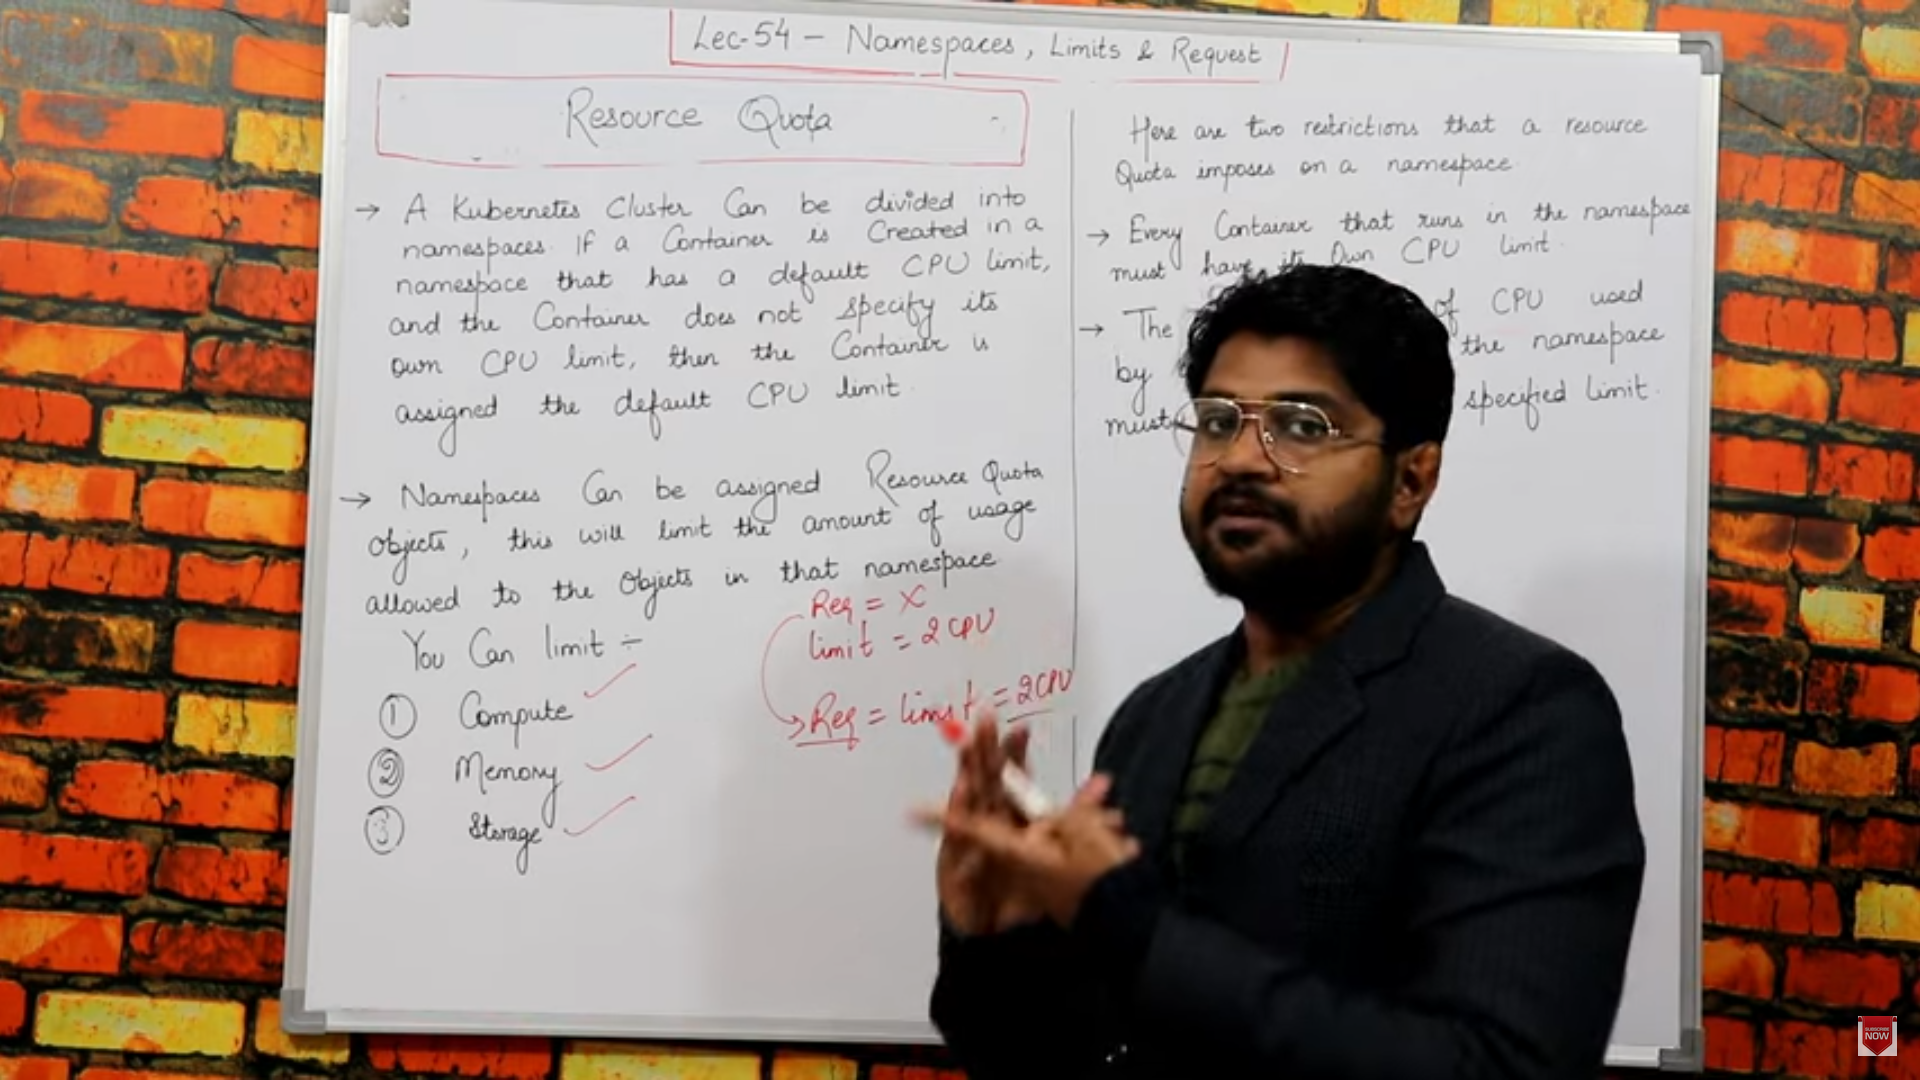 Lec-54 – Namespaces, Limits & Request
Resource Quota
→ A Kubernetes Cluster Can be divided into
namespaces. If a Container is Created in a
namespace that has a default CPU limit,
and the Container does not specify its
own CPU limit, then the Container is
assigned the default CPU limit.
→ Namespaces Can be assigned Resource Quota
Objects, this will limit the amount of usage
allowed to the Objects in that namespace
You Can limit ÷
① Compute ✓
② Memory ✓
③ Storage ✓
Req = X
limit = 2 CPU
Req = limit = 2 CPU
Here are two restrictions that a resource
Quota imposes on a namespace.
→ Every Container that runs in the namespace
must have its Own CPU limit.
→ The of CPU used
by the namespace
must specified limit.
SUBSCRIBE
NOW